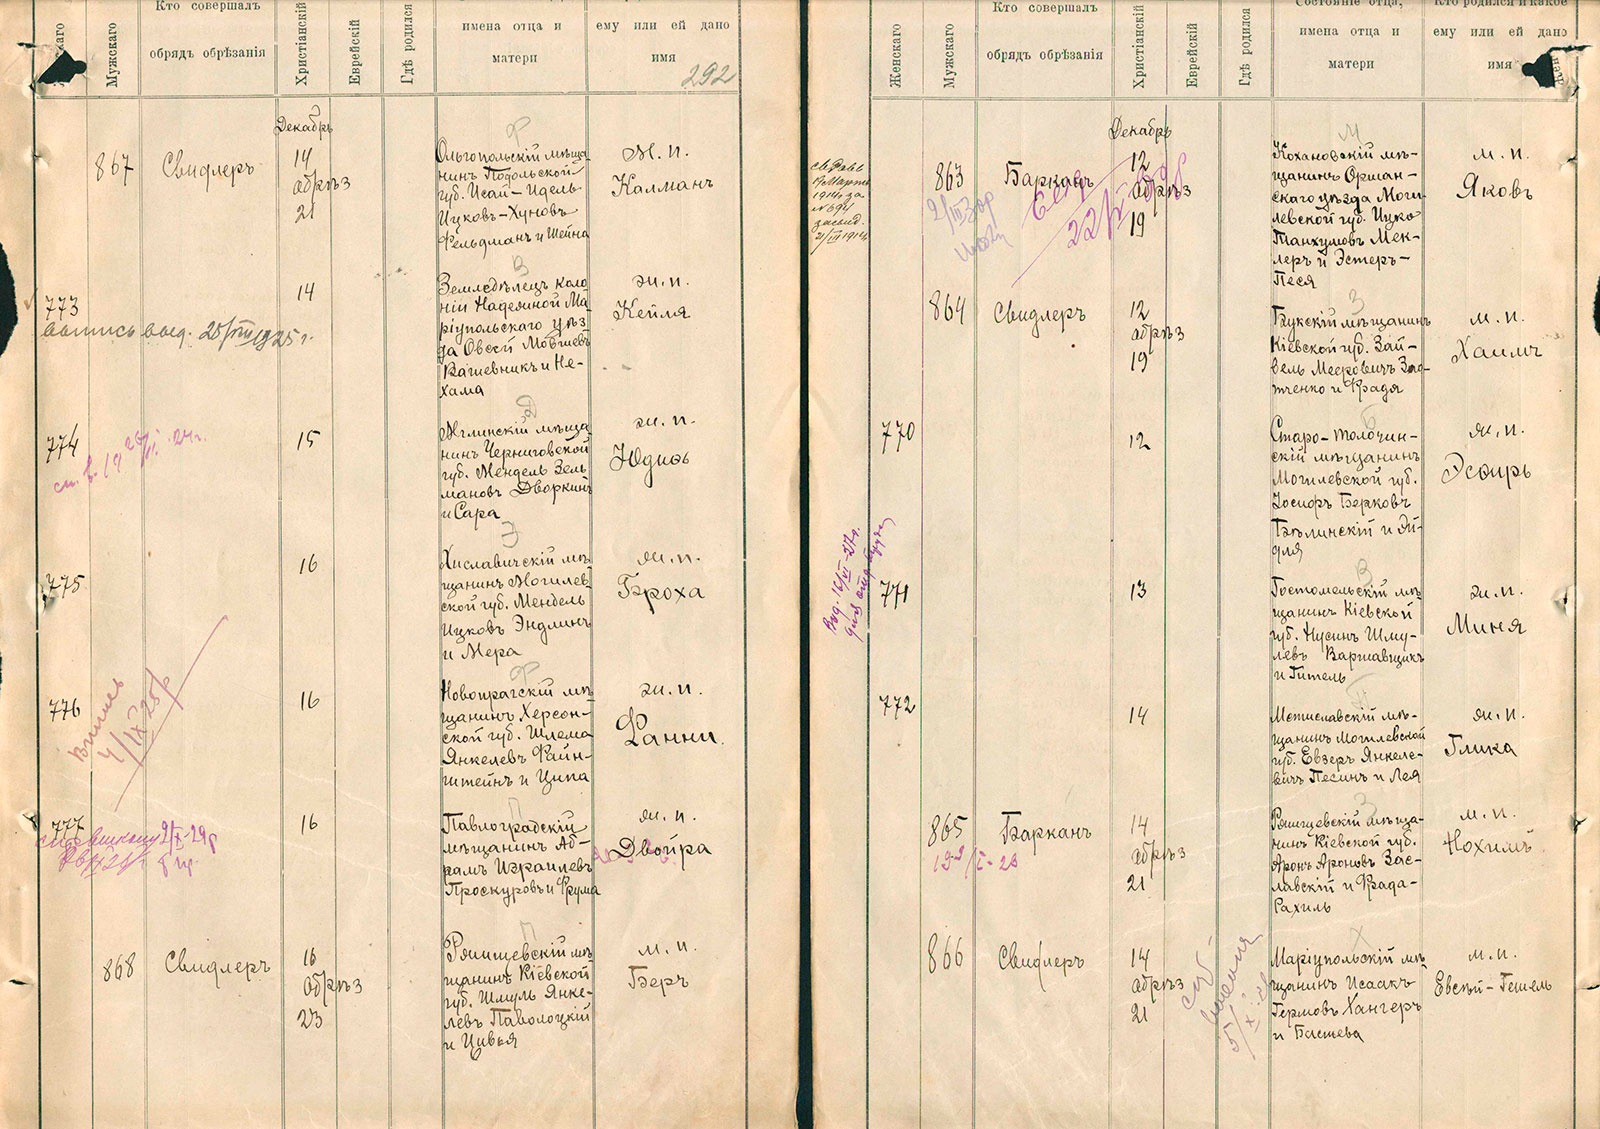 Мужскаго
Кто совершалъ
обрядъ обрѣзанія
Христіанскій
Еврейскій
Гдѣ родился
имена отца и
матери
ему или ей дано
имя
292
Декабрь
867
Свидлеръ
14
обрѣз
21
Ольгопольскій мѣща-
нинъ Подольской
губ. Исай-Идель
Ицковъ-Хуновъ
Фельдманъ и Шейна
м. п.
Калманъ
773
14
Земледѣлецъ коло
ніи Надежной Ма
ріупольскаго уѣз
да Овсей Мовшевъ
и Не-
хама
ж. п.
Кейля
774
15
Мглинскій мѣща
нинъ Черниговской
губ. Мендель Зель
мановъ Дворкинъ
и Сара
ж. п.
Юдись
775
16
Хиславичскій мѣ
щанинъ Могилев
ской губ. Мендель
Ицковъ Эндлинъ
и Мера
ж. п.
Броха
776
Выпись
4/IX 25 г
16
Новопрагскій мѣ
щанинъ Херсон-
ской губ. Шлема
Янкелевъ Файн-
штейнъ и Ципа
ж. п.
Фанни.
777
16
Павлоградскій
мѣщанинъ Аб-
рамъ Израилевъ
Проскуровъ и Фрума
ж. п.
Двойра
868
Свидлеръ
16
обрѣз
23
Ржищевскій мѣ
щанинъ Кіевской
губ. Шмуль Янке-
левъ Паволоцкій
и Цивья
м. п.
Беръ
Женскаго
Мужскаго
Кто совершалъ
обрядъ обрѣзанія
Христіанскій
Еврейскій
Гдѣ родился
Состояніе отца,
имена отца и
матери
Кто родился и какое
ему или ей дано
имя
Декабрь
863
Барканъ
12
обрѣз
19
Кохановскій мѣ-
щанинъ Оршан-
скаго уѣзда Моги-
левской губ. Ицко
Танхумовъ Мек-
леръ и Эстеръ-
Песя
м. п.
Яковъ
864
Свидлеръ
12
обрѣз
19
Букскій мѣщанинъ
Кіевской губ. Зай-
вель Мееровичъ
и Фрадя
м. п.
Хаимъ
770
12
Старо-Толочин-
скій мѣщанинъ
Могилевской губ.
Іосифъ Берковъ
и Эй-
для
ж. п.
Эсѳирь
771
13
Гостомельскій мѣ
щанинъ Кіевской
губ. Нусинъ Шму-
левъ Варшавщикъ
и Гитель
ж. п.
Миня
772
14
Мстиславскій мѣ-
щанинъ Могилевской
губ. Евзеръ Янкеле-
вичъ Песинъ и Лея
ж. п.
Глика
865
Барканъ
14
обрѣз
21
Ржищевскій мѣща-
нинъ Кіевской губ.
Аронъ Ароновъ Зас-
лавскій и Фрада-
Рахиль
м. п.
Нохимъ
866
Свидлеръ
14
обрѣз
21
Маріупольскій мѣ
щанинъ Исаакъ
Хангеръ
и Басшева
м. п.
Евсѣй-Гешель